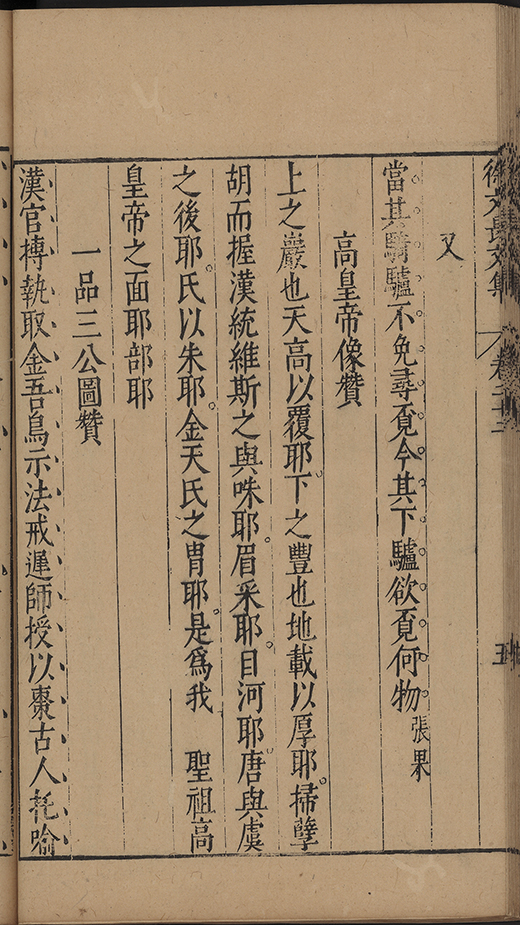 徐文長文集 卷二十二 五
又
當其騎驢不免尋覓今其下驢欲覓何物 張果
高皇帝像贊
上之巖也天高以覆耶下之豐也地載以厚耶掃孽
胡而握漢統維斯之與咮耶眉采耶目河耶唐與虞
之後耶氏以朱耶金天氏之胄耶是爲我 聖祖高
皇帝之面耶部耶
一品三公圖贊
漢官摶執取金吾鳥示法戒遲師授以棗古人托喻